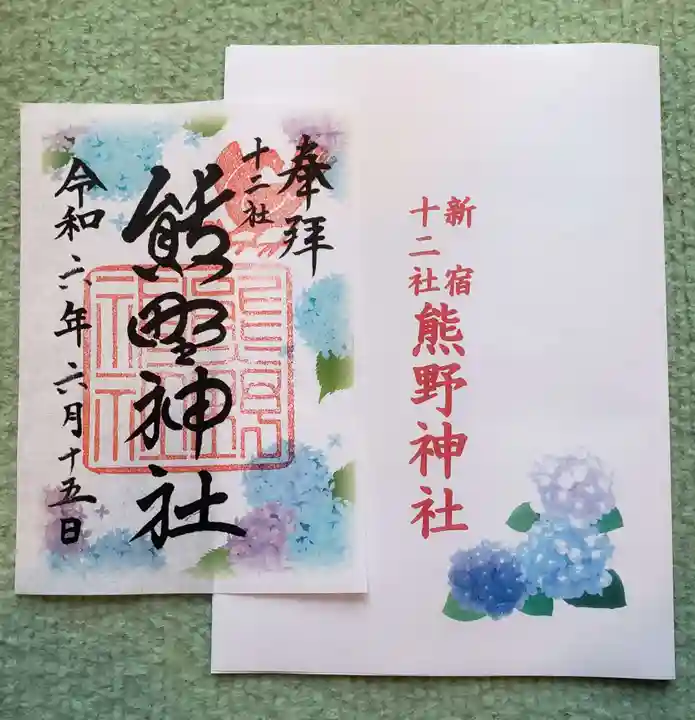 奉拝
十二社
熊野神社
令和六年六月十五日
熊野
神社
新宿
十二社
熊野神社